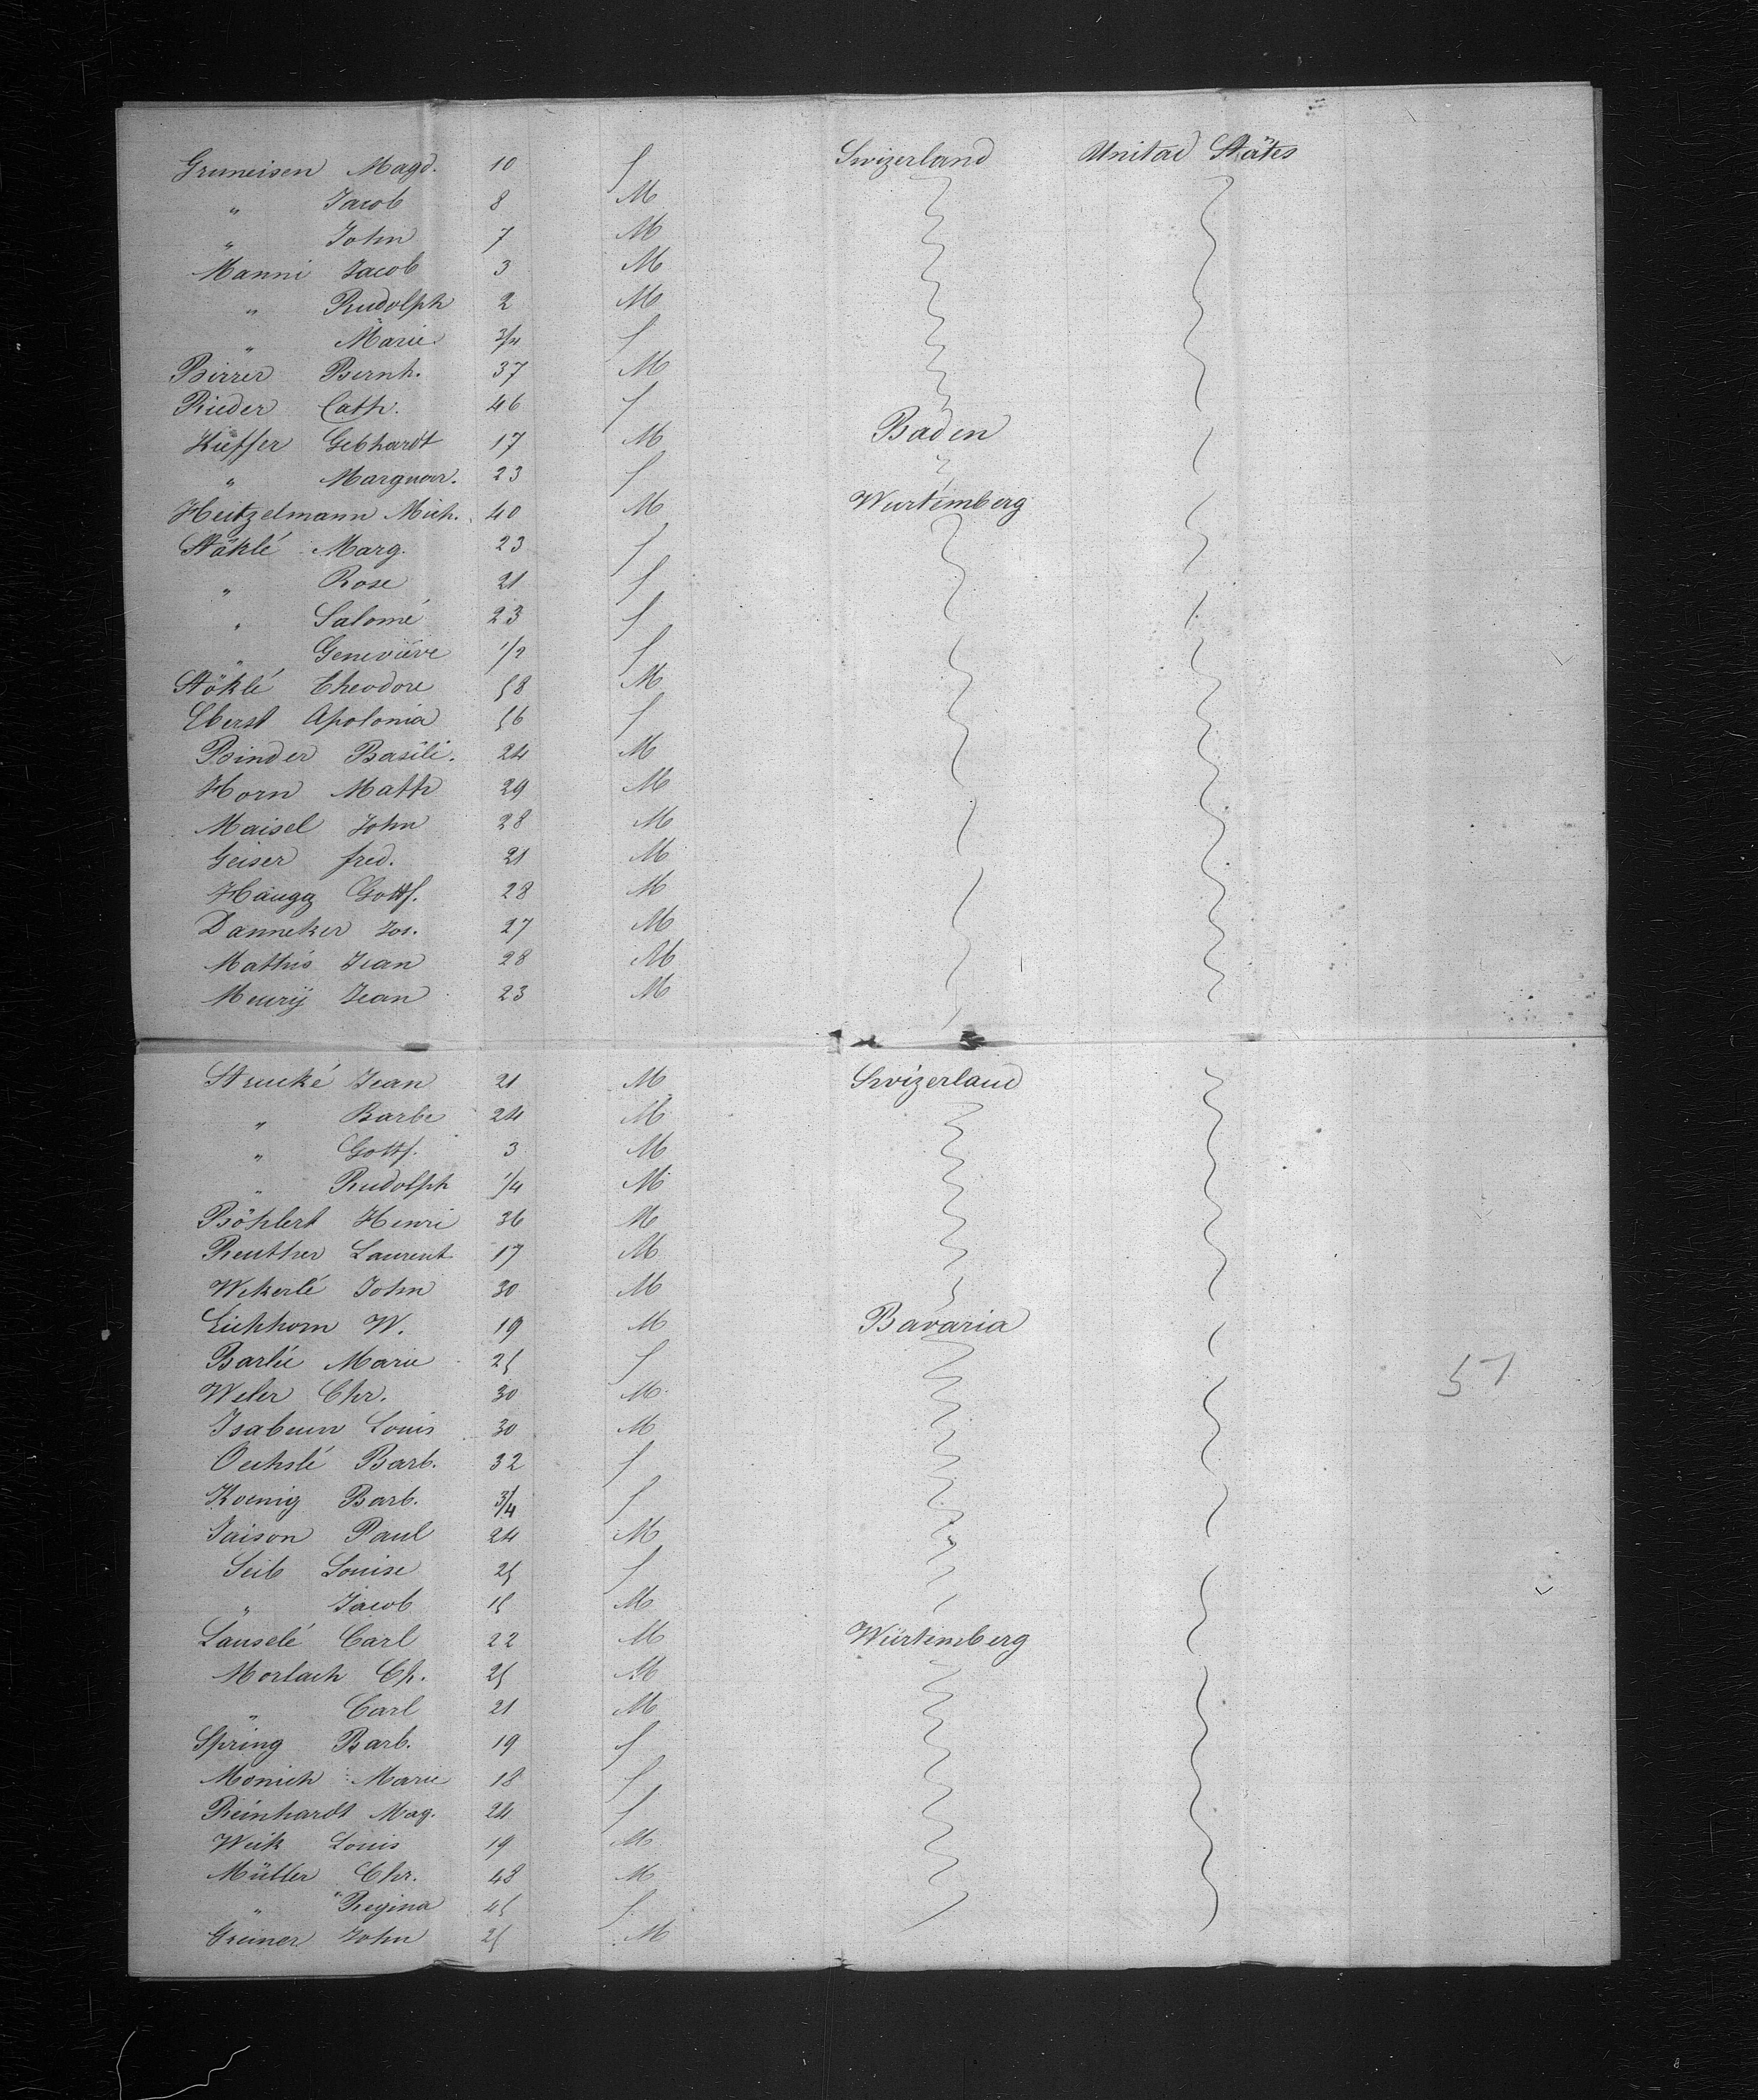 Gruneisen Magd. 10 f Swizerland Unitad Stätes
" Jacob 8 M
" John 7 M
Manni Jacob 3 M
" Rudolph 2 M
" Marie 3/4 f
Birrer Bernh. 37 M
Rieder Cath. 46 f
Kieffer Gebhardt 17 M Baden
" Marguar. 23 f
Heitzelmann Mich. 40 M Wurtemberg
Stöklé Marg. 23 f
" Rose 21 f
" Salomé 23 f
" Geneviève 1/2 f
Stöklé Theodore 58 M
Eberst Apolonia 56 f
Binder Basili. 24 M
Horn Math 29 M
Maisel John 28 M
Geiser fred. 21 M
Haugg Gottf. 28 M
Danneker Jos. 27 M
Mathis Jean 28 M
Meury Jean 23 M
Strucké Jean 21 M Swizerland
" Barbe 24 M
" Gottf. 3 M
" Rudolph 1/4 M
Böhlert Henri 36 M
Reuther Laurent 17 M
Wekerlé John 30 M
Eichhorn W. 19 M Bavaria
Barlié Marie 25 f
Weler Chr. 30 M
Isabeun Louis 30 M
Oechslé Barb. 32 f
Koenig Barb. 3/4 f
Jaison Paul 24 M
Seib Louise 25 f
" Jacob 15 M
Lauselé Carl 22 M Würtemberg
Morlach Ch. 25 M
" Carl 21 M
Spring Barb. 19 f
Monich Marie 18 f
Reinhardt Mag. 24 f
Weik Louis 19 M
Müller Chr. 48 M
" Regina 45 f
Greiner John 25 M
51